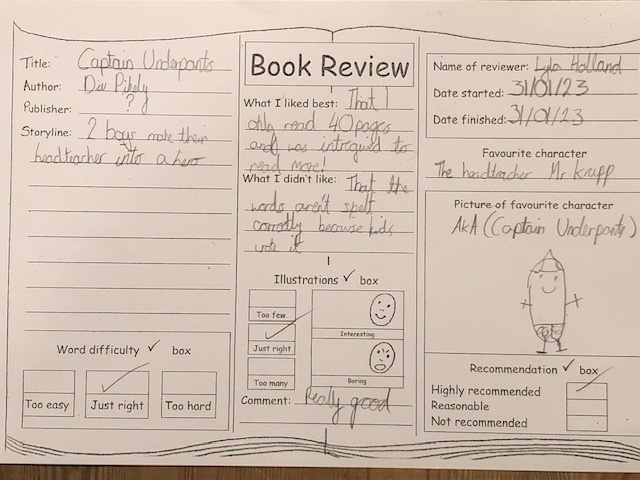 Title: Captain Underpants
Author: Div Pikely
Publisher: ?
Storyline: 2 boys make their
headteacher into a hero
Word difficulty ✓ box
Too easy
Just right
Too hard
Book Review
What I liked best: That I
only read 40 pages
and was intregued to
read more!
What I didn't like: That the
words aren't spelt
correctly because kids
wrote it
Illustrations ✓ box
Too few
Just right
Too many
Interesting
Boring
Comment: Really good
Name of reviewer: Lyla Holland
Date started: 31/01/23
Date finished: 31/01/23
Favourite character
The headteacher Mr Krupp
Picture of favourite character
AKA (Captain Underpants)
Recommendation ✓ box
Highly recommended
Reasonable
Not recommended